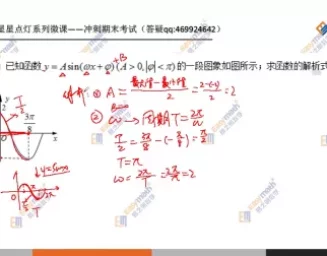 星星点灯系列微课——冲刺期末考试（答疑qq:469924642）
+B
：已知函数 y=Asin(ωx+φ)(A>0,|φ|<π) 的一段图象如图所示；求函数的解析式
分析：① A = (最大值-最小值)/2 = (2-(-2))/2 = 2
② ω → 周期T = 2π/ω
y 3π/8
T/2 = 3π/8 - (-π/8) = π/2
T=π
ω = 2π/T = 2π/π = 2
y=sinx
T